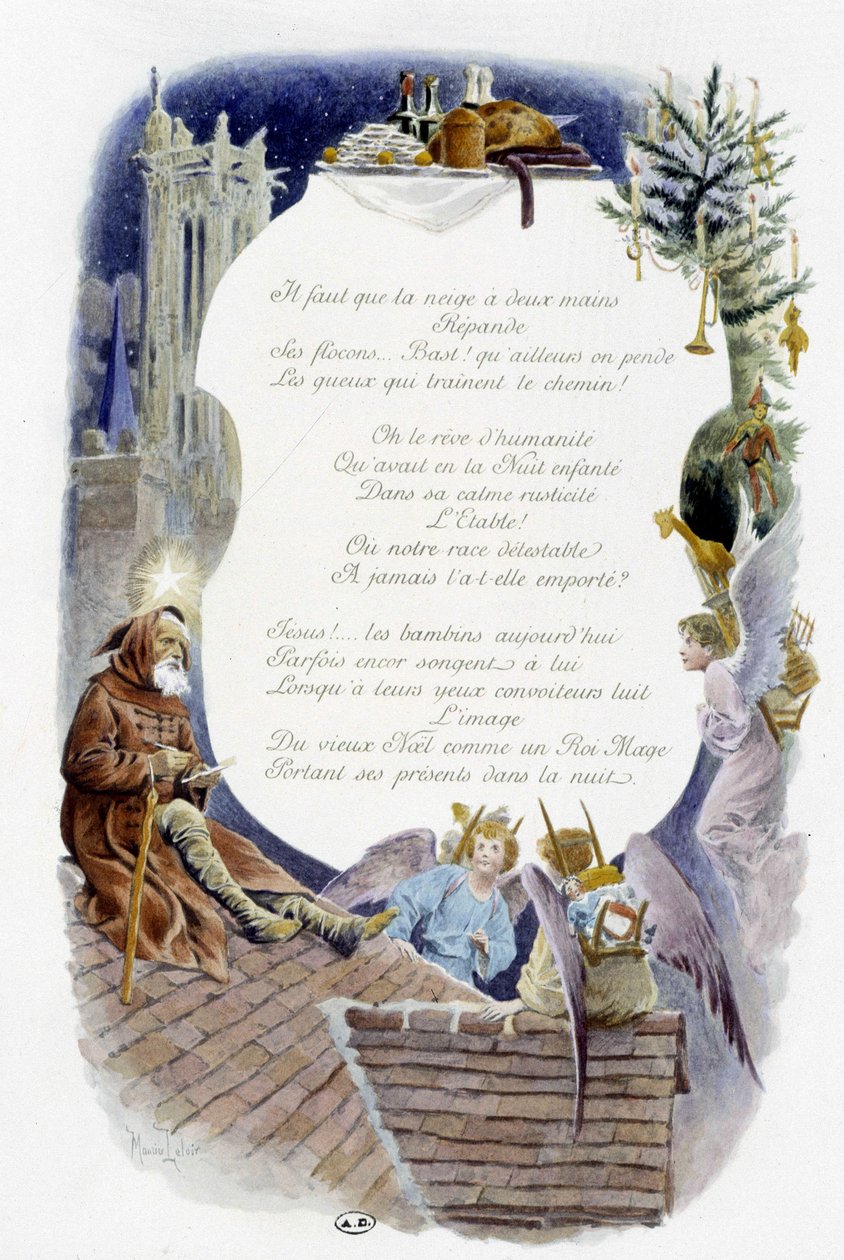 Il faut que la neige à deux mains
Répande
Ses flocons... Bast! qu'ailleurs on pende
Les gueux qui traînent le chemin!
Oh le rêve d'humanité
Qu'avait en la Nuit enfanté
Dans sa calme rusticité
L'Etable!
Où notre race délestable
A jamais l'a-t-elle emporté?
Jésus!.... les bambins aujourd'hui
Parfois encor songent à lui
Lorsqu'à leurs yeux convoiteurs luit
L'image
Du vieux Noël comme un Roi Mage
Portant ses présents dans la nuit.
Maurice Leloir
A.D.